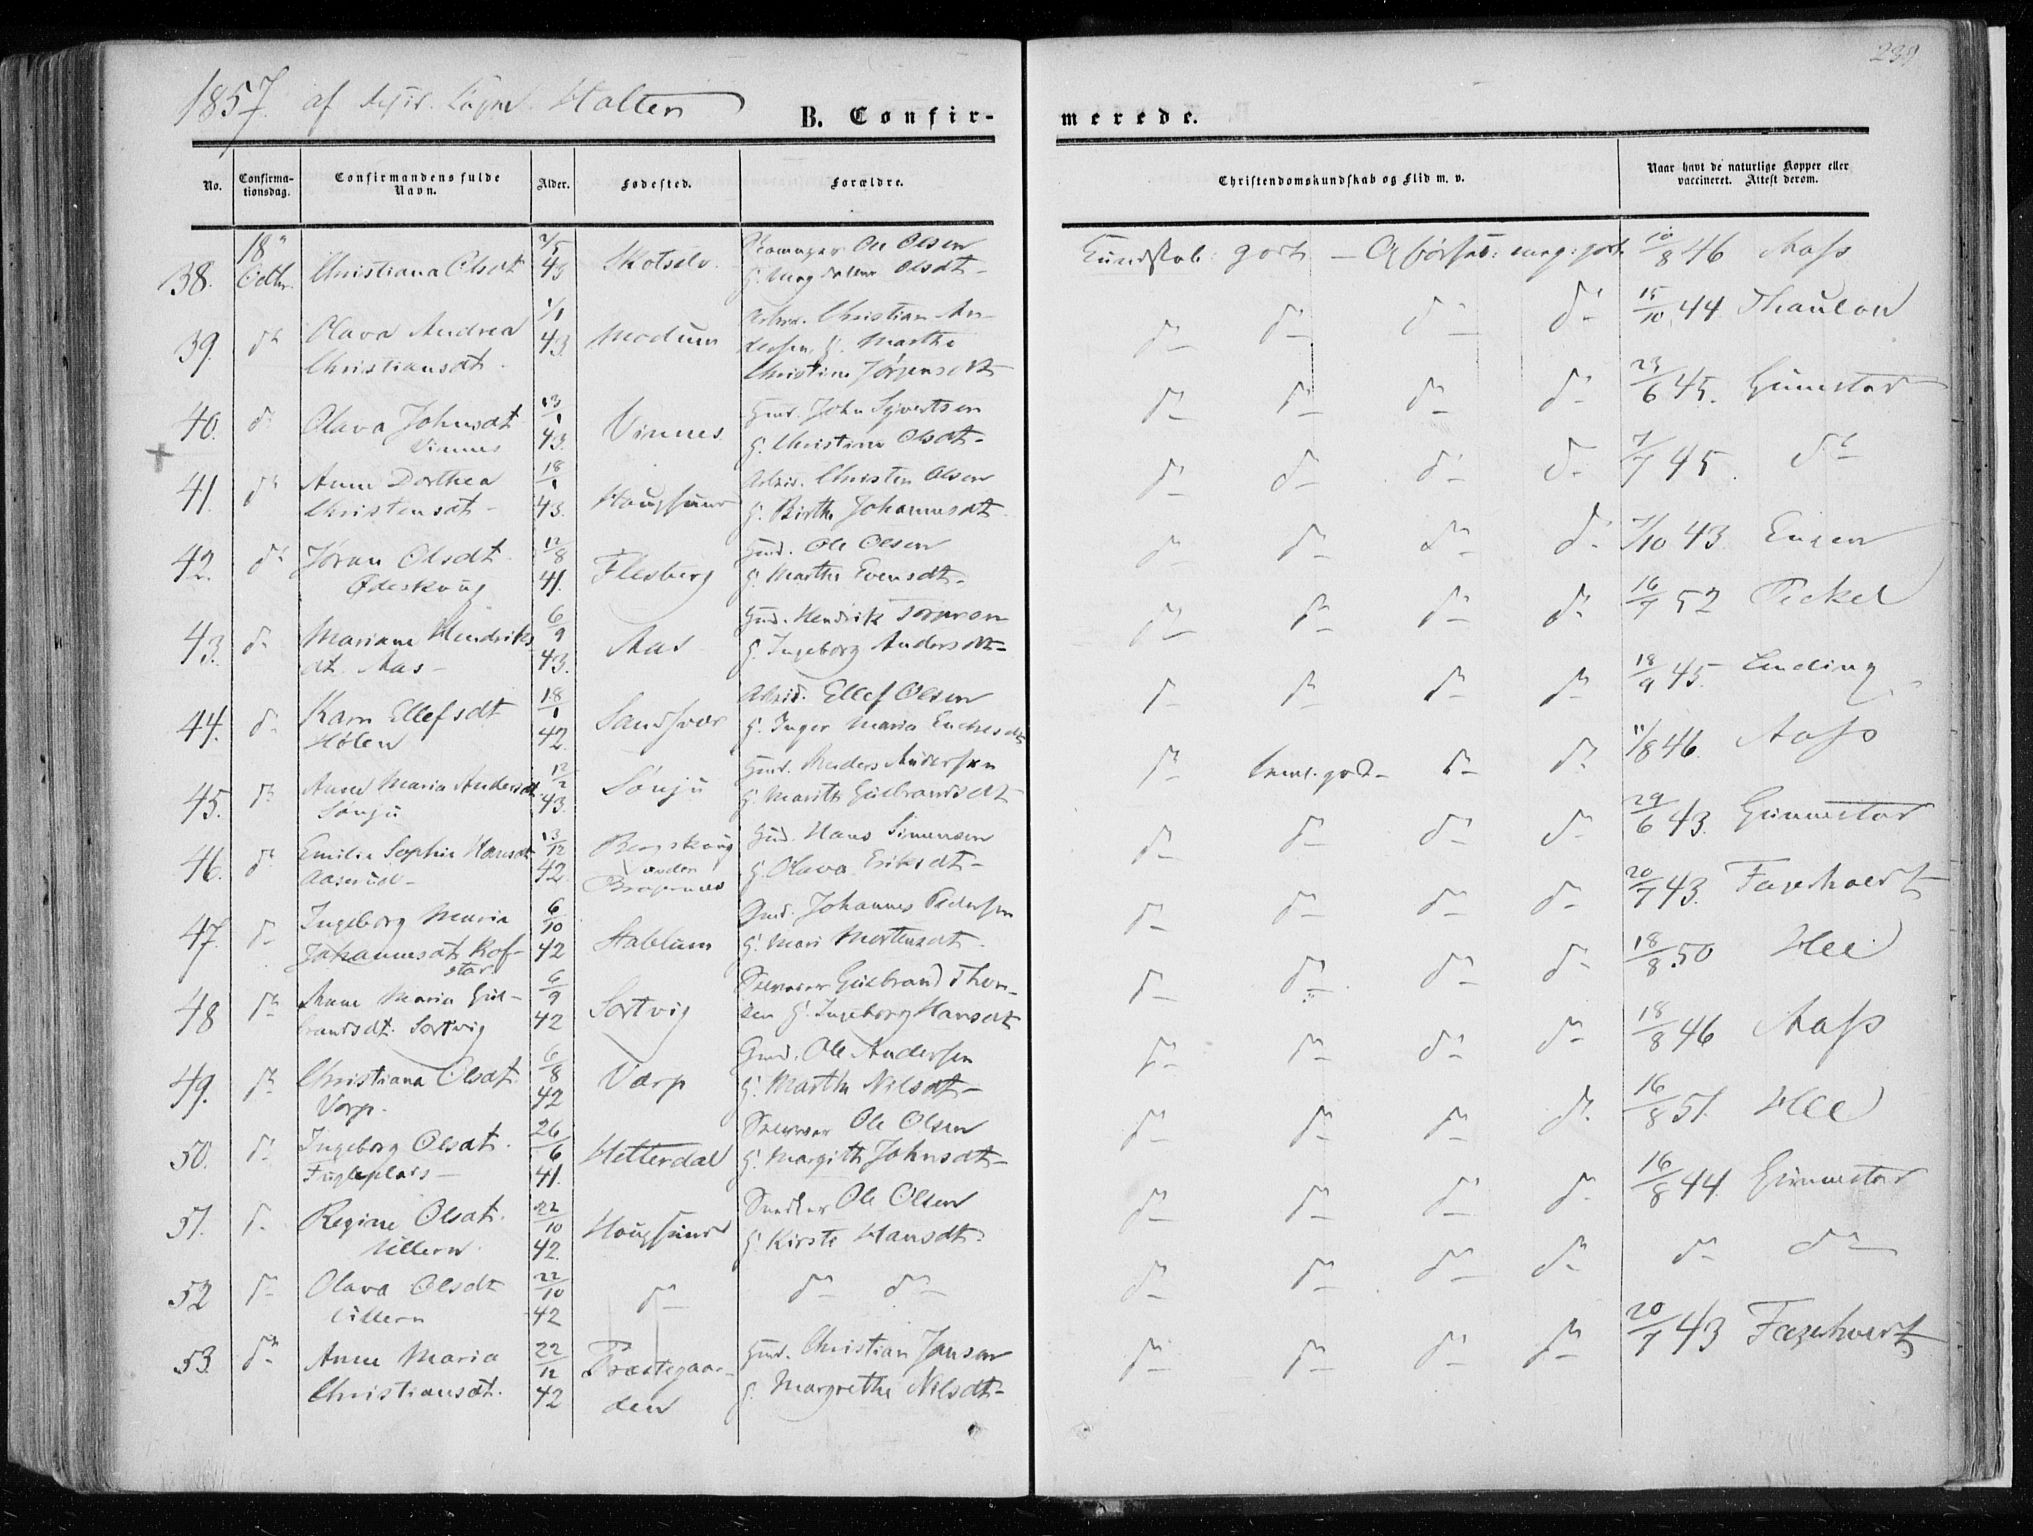 239
1857. af Holten
B. Confir-
merede.
No.
Confirma-
tionsdag.
Confirmandens fulde
Navn.
Alder.
Fødested.
Forældre.
Christendomskundskab og Flid m. v.
Naar havt de naturlige Kopper eller
vaccineret. Attest derom.
38. 18 Octbr. Christiana Olsdt 43 Skotselv. Ole Olsen
G. Magdalene Olsdt
Kundskab: godt — Opførsel: meg: godt 10/8 46 Aass
39. do Olava Andrea 1/1 43. Modum Arbeid. Christian An-
Christiansdt. dersen G. Marthe
Christine Jørgensdt
do do do do 15/10 44. Thaulow
40. do Olava Johnsdt 13/1 43. Vinnes Gmd. John Syvertsen
Vinnes G. Christine Olsdt
do do do do 23/6 45. Gunnestad
41. do Anne Dorthea 18/1 43. Hougsund Arbeid. Christen Olsen
Christensdt G. Birthe Johannesdt
do do do do 7/7 45. do
42. do Jøran Olsdt 12/8 41. Flesberg Gmd. Ole Olsen
Ødeskoug G. Marthe Evensdt
do do do do 7/10 43.
43. do Mariane Hendriks 6/9 43. Aas Gmd. Hendrik
dt. Aas G. Ingeborg Andersdt
do do do do 16/7 52
44. do Karn Ellefsdt 18/1 42. Sandsvær Arbeid. Ellef Olsen
Hølen G. Inger Maria
do do do do 18/9 45.
45. do Anne Maria Andersdt 12/2 43. Sønju Gmd. Anders Andersen
Sønju G. Marith Gulbrandsdt
do do do 11/8 46. Aass
46. do Emilie Sophie Hansdt 13/12 42. Bergskoug Gmd. Hans Simensen
Aaserud under
Bragernes G. Olava Eriksdt
do do do do 29/6 43. Gunnestad
47. do Ingeborg Maria 6/10 42 Stablum Gmd. Johannes Pedersen
Johannesdt Kof-
stad G. Mari Mortensdt.
do do do do 20/7 43. Fagerholdt
48 do Anne Maria Gul- 6/9 42 Sortvig Gulbrand Thor-
brandsdt. Sortvig sen G. Ingeborg Hansdt
do do do do 18/8 50 Hee
49. do Christiana Olsdt. 6/8 42 Varp Gmd. Ole Andersen
Varp. G. Marthe Nilsdt
do do do do 18/8 46 Aass
50. do Ingeborg Olsdt. 26/6 41. Hitterdal Ole Olsen
Fugleplads G. Margith Johnsdt
do do do do 16/8 51. Hee
51. do Regine Olsdt. 22/10 42. Hougsund Ole Olsen
Ullern. G. Kirsti Hansdt
do do do do 16/8 44. Gunnestad
52 do Olava Olsdt 22/10 42 do do do
Ullern
do do do do do do
53. do Anne Maria 22/12 42 Præstegaar-
den Gmd. Christian Jansen
Christiansdt. G. Margrethe Nilsdt
do do do do 20/7 43 Fagerholdt